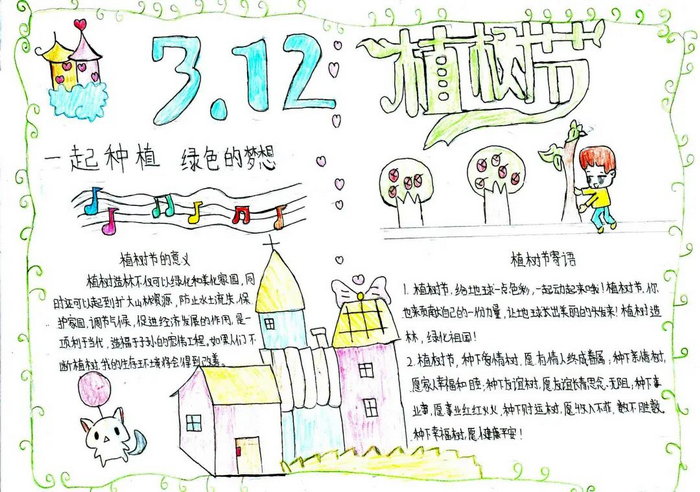 3.12
植树节
一起种植 绿色的梦想
植树节的意义
植树造林不仅可以绿化和美化家园,同
时还可以起到扩大山林资源,防止水土流失,保
护家园,调节气候,促进经济发展的作用,是一
项利于当代,造福于子孙的宏伟工程,如果人们不
断植树,我们的生存环境将会得到改善
植树节寄语
1. 植树节,给地球一点色彩,一起动起来哦!植树节,你
也来贡献自己的一份力量,让地球发出美丽的光芒来!植树造
林,绿化祖国!
2. 植树节,种下爱情树,愿有情人终成眷属,种下亲情树,
愿家人幸福和睦,种下友谊树,愿友谊作情思念无阻,种下事
业树,愿事业红红火火,种下财运树,愿收入不菲,数不胜数,
种下幸福树,愿人健康平安!